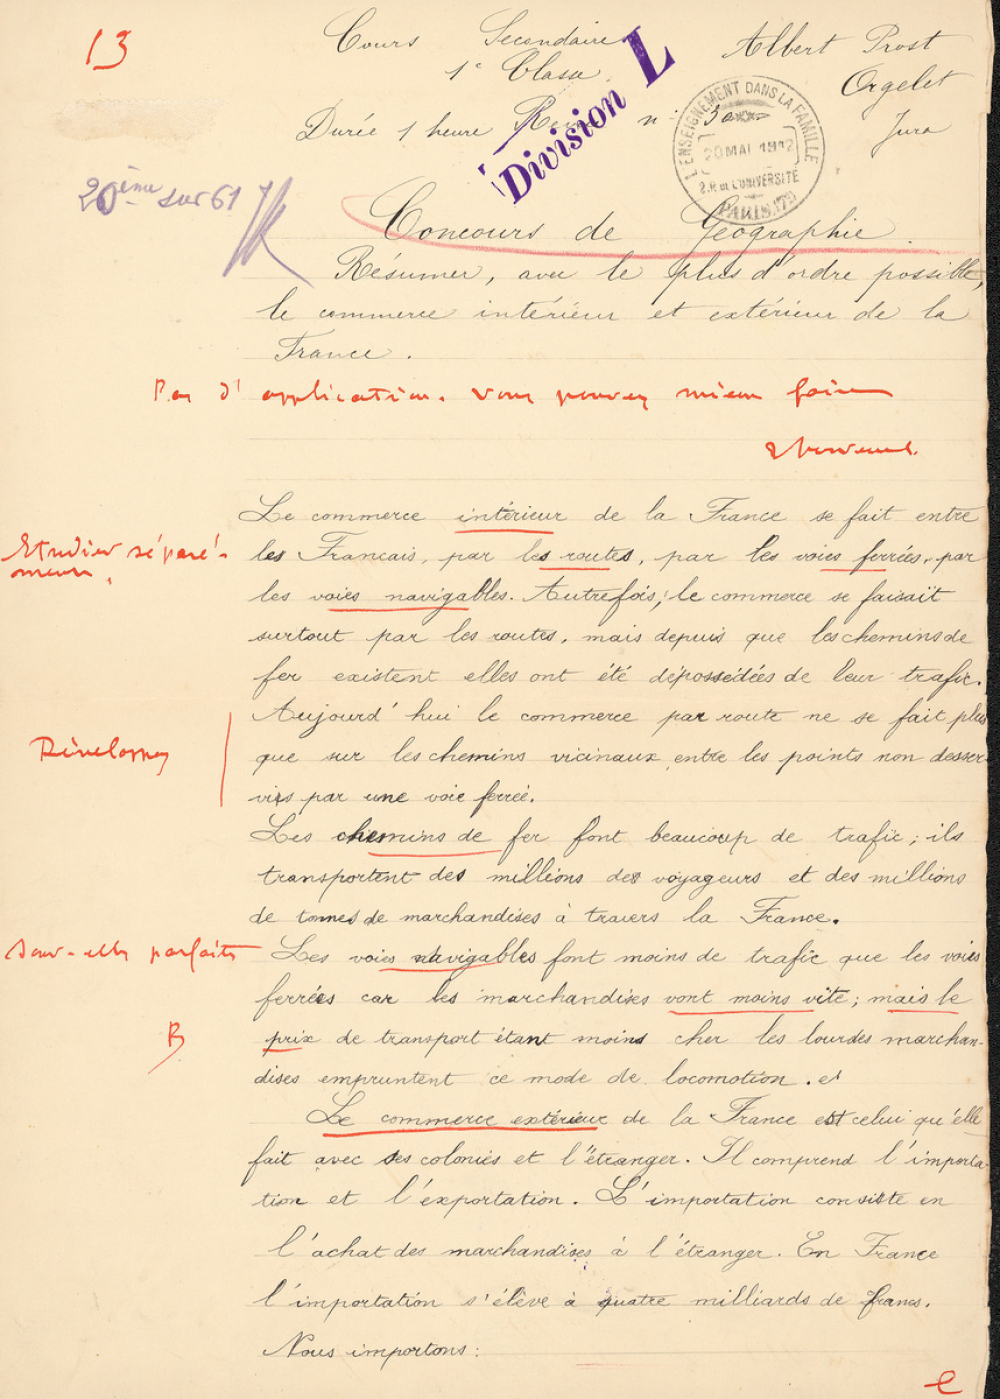 13
Cours Secondaire
1e Classe
Durée 1 heure
Division L
n° 30
Albert Prost
Orgelet
Jura
L'ENSEIGNEMENT DANS LA FAMILLE
20 MAI 1912
2.R de L'UNIVERSITÉ
PARIS
20ème sur 61
Concours de Géographie.
Résumer, avec le plus d'ordre possible,
le commerce intérieur et extérieur de la
France.
Pas d'application. Vous pouvez mieux faire
Le commerce intérieur de la France se fait entre
Etudier séparé-
ment.
les Francais, par les routes, par les voies ferrées, par
les voies navigables. Autrefois, le commerce se faisait
surtout par les routes, mais depuis que les chemins de
fer existent elles ont été dépossédées de leur trafic.
Aujourd'hui le commerce par route ne se fait plus
Développez
que sur les chemins vicinaux entre les points non desser-
vis par une voie ferrée.
Les chemins de fer font beaucoup de trafic; ils
transportent des millions des voyageurs et des millions
de tonnes de marchandises à travers la France.
Sont-elles parfaites
Les voies navigables font moins de trafic que les voies
ferrées car les marchandises vont moins vite; mais le
B
prix de transport étant moins cher les lourdes marchan-
dises empruntent ce mode de locomotion. et
Le commerce extérieur de la France est celui qu'elle
fait avec ses colonies et l'étranger. Il comprend l'importa-
tion et l'exportation. L'importation consiste en
l'achat des marchandises à l'étranger. En France
l'importation s'élève à quatre milliards de francs.
Nous importons: